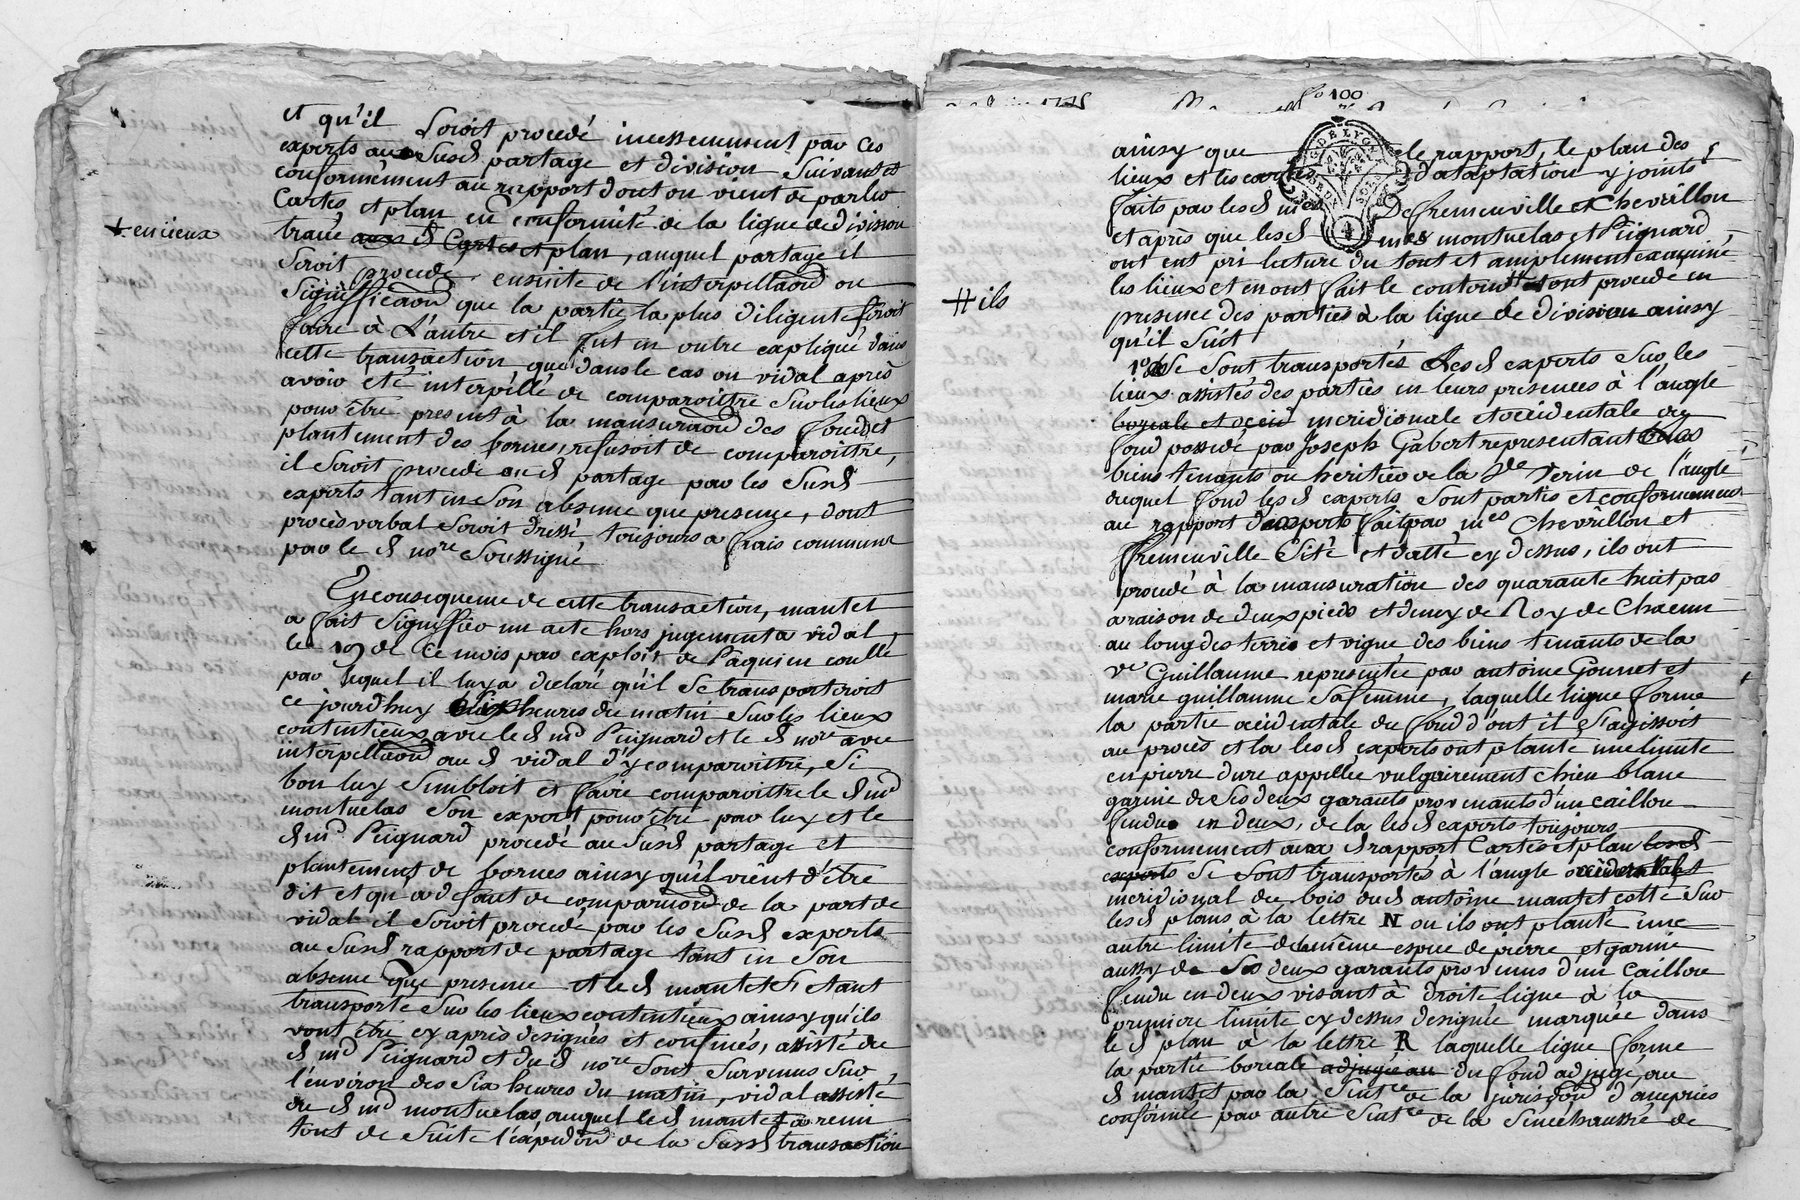 et qu'il Seroit procedé incessemment par ces
experts au Susd partage et division Suivant et
conformement au rapport dont on vient de parler
Cartes et plan en conformité de la ligne de division
+ en iceux
tracée aux d Cartes et plan, auquel partage il
Seroit procede ensuite de l'interpellaon ou
Signifficaon que la partie la plus diligente feroit
faire à L'autre et il fut en outre expliqué dans
cette transaction que dans le cas ou vidal après
avoir été interpéllé de comparoittre Sur les lieux
pour être present à la mansuraon des fonds et
plantement des bornes, refusoit de comparoittre,
il Seroit procede au d partage par les Susd
experts tant en Son absence que presence, dont
procès verbal Seroit dressé toujours a frais communs
par le d nore Soussigné
En consequence de cette transaction, mantet
a fait Signiffier un acte hors jugement a vidal
le 19 de ce mois par exploit de Paquien
par lequel il luy a declaré qu'il Se transporteroit
ce jourd'huy Six heures du matin Sur les lieux
contentieux avec le d md Peignard et le d nore avec
interpellaon au d vidal d'y comparoittre, Si
bon luy Sembloit et faire comparoittre le d md
montuelas Son expert pour être par luy et le
d md Peignard procedé au Susd partage et
plantement de bornes ainsy qu'il vient d'être
dit et qu'a defaut de comparaon de la part de
vidal il Seroit procedé par les Susd experts
au Susd rapport de partage tant en Son
absence que presence et le d mantet S'etant
transporté Sur les lieux contentieux ainsy qu'ils
vont être cy après designés et confinés, assisté du
d md Peignard et du d nore Sont Survenus Sur
l'environ des Six heures du matin, vidal assisté
du d md montuelas, auquel le d mantet a remis
tout de Suite l'expedon de la Susd transaction
fo 100
G DE LYON
ainsy que le rapport, le plan des
lieux et les cartes d'ataptation y joints
faits par les d mes De fremenville et Chevrillon
et après que les d mes montuelas et Peignard
ont eut pri lecture du tout et amplement examiné
les lieux et en ont fait le contour # ont procedé en
# ils
presence des parties à la ligne de division ainsy
qu'il Suit
1° Se Sont transportés Les d experts Sur les
lieux assistés des parties en leurs presences à l'angle
boreale et occid meridionale et occidentale du
fond possedé par Joseph Gabert representant
biens tenants ou heritiers de la ve Verin de l'angle
duquel fond les d experts Sont partis et conformement
au rapport d'experts fait par mes Chevrillon et
fremenville Sité et datté cy dessus, ils ont
procedé à la mansuration des quarante huit pas
a raison de deux pieds et demy de Roy de Chacun
au long des terres et vigne des biens tenants de la
ve Guillaume representée par antoine Gonnet et
marie guillaume Sa femme, laquelle ligne forme
la partie occidentale du fond d'ont il S'agissoit
au procès et la les d experts ont planté une limite
en pierre dure appellée vulgairement chien blanc
garnie de Ses deux garants provenants d'un caillou
fendu en deux, de la les d experts toujours
conformement aux d rapport Cartes et plan les d
experts Se Sont transportés à l'angle occidental et
meridional du bois du d antoine mantet cotté Sur
les d plans à la lettre N ou ils ont planté une
autre limite de la même espece de pierre et garnie
aussy de Ses deux garants provenus d'un Caillou
fendu en deux visant à droite ligne à la
premiere limite cy dessus designée marquée dans
le d plan à la lettre R laquelle ligne forme
la partie boreale adjugée au du fond adjugé au
d mantet par la Sentce de la jurisdon d'ampuis
confirmée par autre Sentce de la Senechaussée de